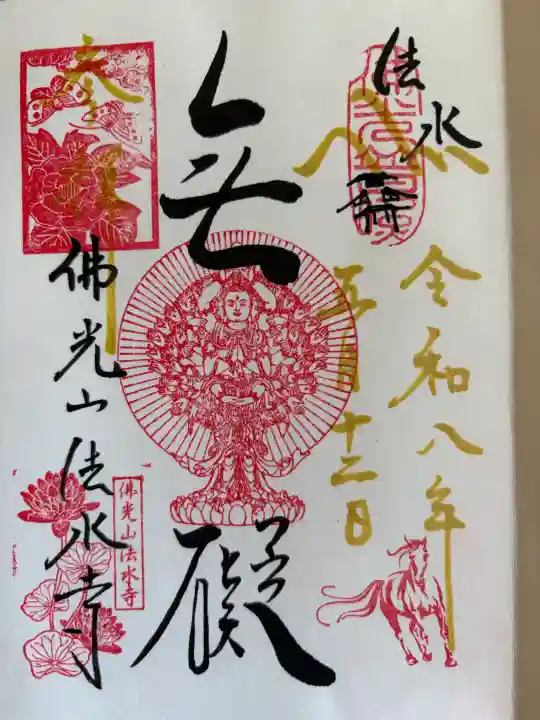 法水
令和八年
五月十二日
無礙
奉拝
佛光山法水寺
佛光山法水寺